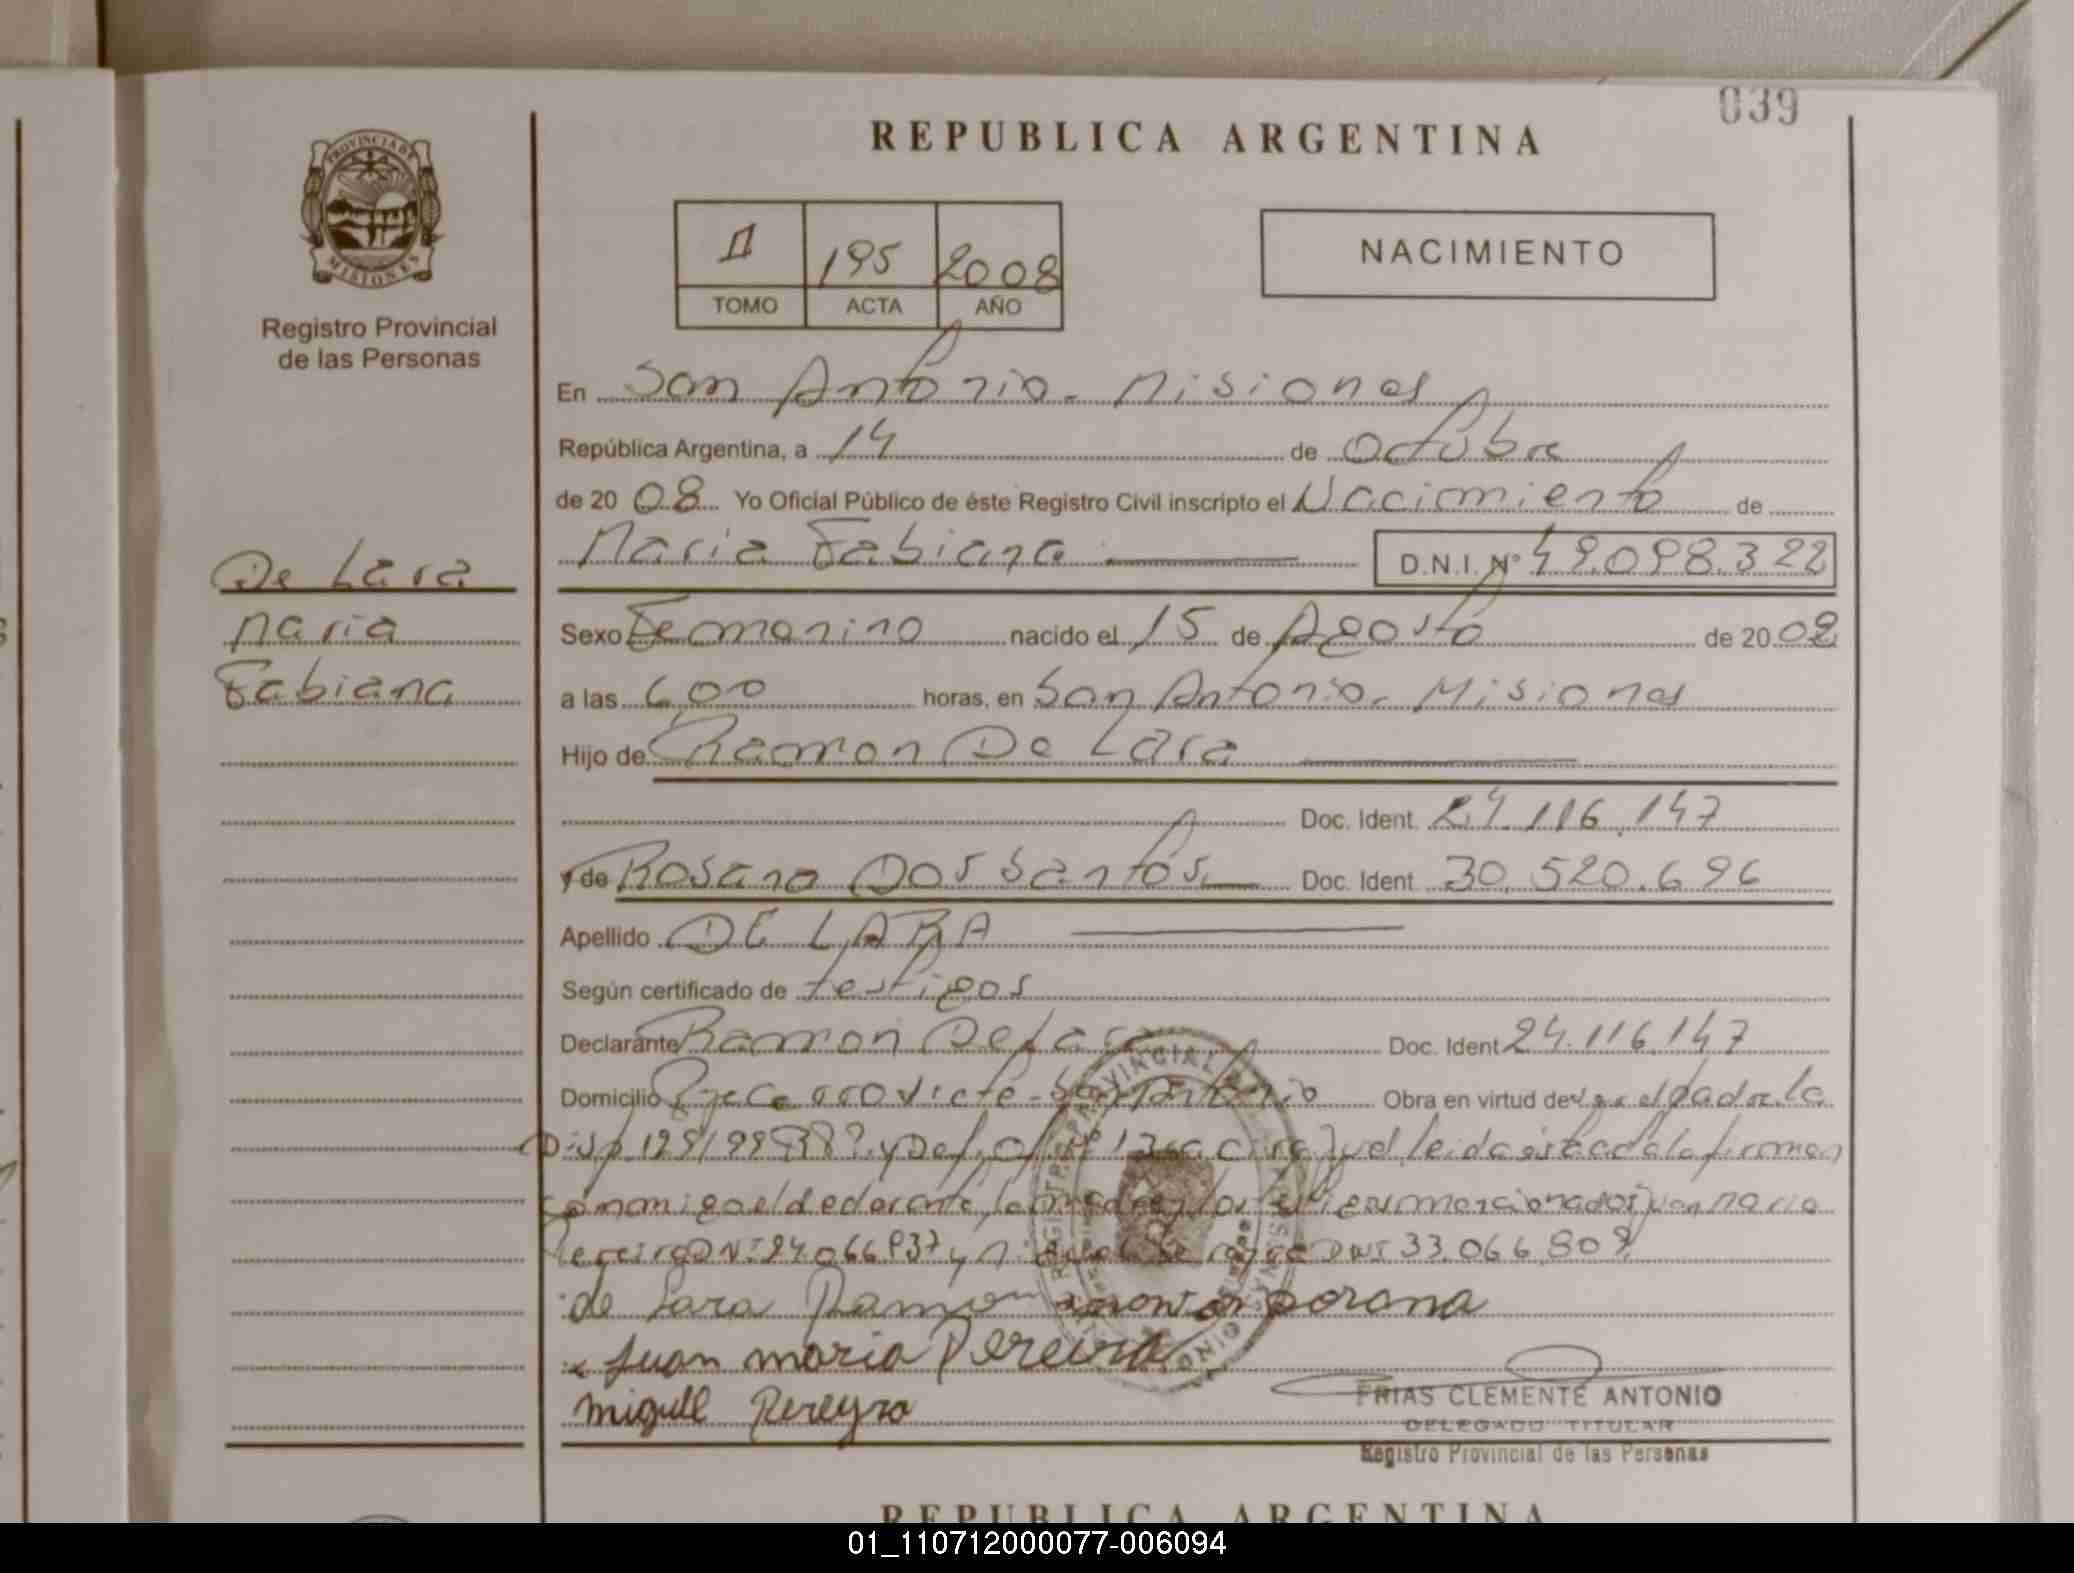 039
REPUBLICA ARGENTINA
PROVINCIA DE
MISIONES
Registro Provincial
de las Personas
II 195 2008
TOMO ACTA AÑO
NACIMIENTO
En San Antonio - Misiones
República Argentina, a 14 de Octubre
de 20 08 Yo Oficial Público de éste Registro Civil inscripto el Nacimiento de
Maria Fabiana D.N.I. Nº 49.098.322
De Lara
Maria
Fabiana
Sexo Femenino nacido el 15 de Agosto de 20 08
a las 6,00 horas, en San Antonio - Misiones
Hijo de Ramon De Lara
Doc. Ident. 24.116.147
y de Rosana Dos Santos Doc. Ident. 30.520.696
Apellido DE LARA
Según certificado de testigos
Declarante Ramon De Lara Doc. Ident 24.116.147
Domicilio San Antonio Obra en virtud de
leida esta acta la firman
conmigo el declarante, la madre y los testigos mencionados Juan Maria
Pereira DNI 24.066.937 y DNI 33.066.809
de Lara Ramon
Juan maria Pereira
Miguel Pereyra
FRIAS CLEMENTE ANTONIO
DELEGADO TITULAR
Registro Provincial de las Personas
REPUBLICA ARGENTINA
01_110712000077-006094